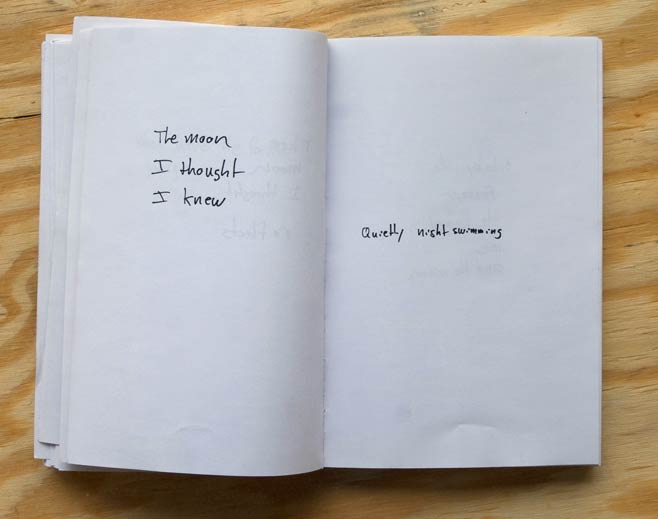 The moon
I thought
I knew
Quietly night swimming